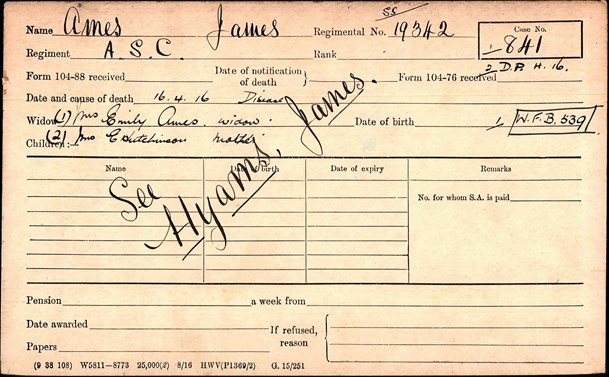 Name Ames James Regimental No. SS 19342 Case No.
1/841
Regiment A. S. C. Rank
2 D.P. 4. 16.
Form 104-88 received Date of notification of death Form 104-76 received
Date and cause of death 16.4.16 Disease
Widow (1) Mrs Emily Ames. widow. Date of birth 1/ W.F.B. 539
Children: (2) Mrs E Hutchinson mother
Name Date of birth Date of expiry Remarks
No. for whom S.A. is paid
See Hyams, James.
Pension a week from
Date awarded If refused, reason
Papers
(9 38 108) W5811—8773 25,000(2) 8/16 HWV(P1369/2) G. 15/251